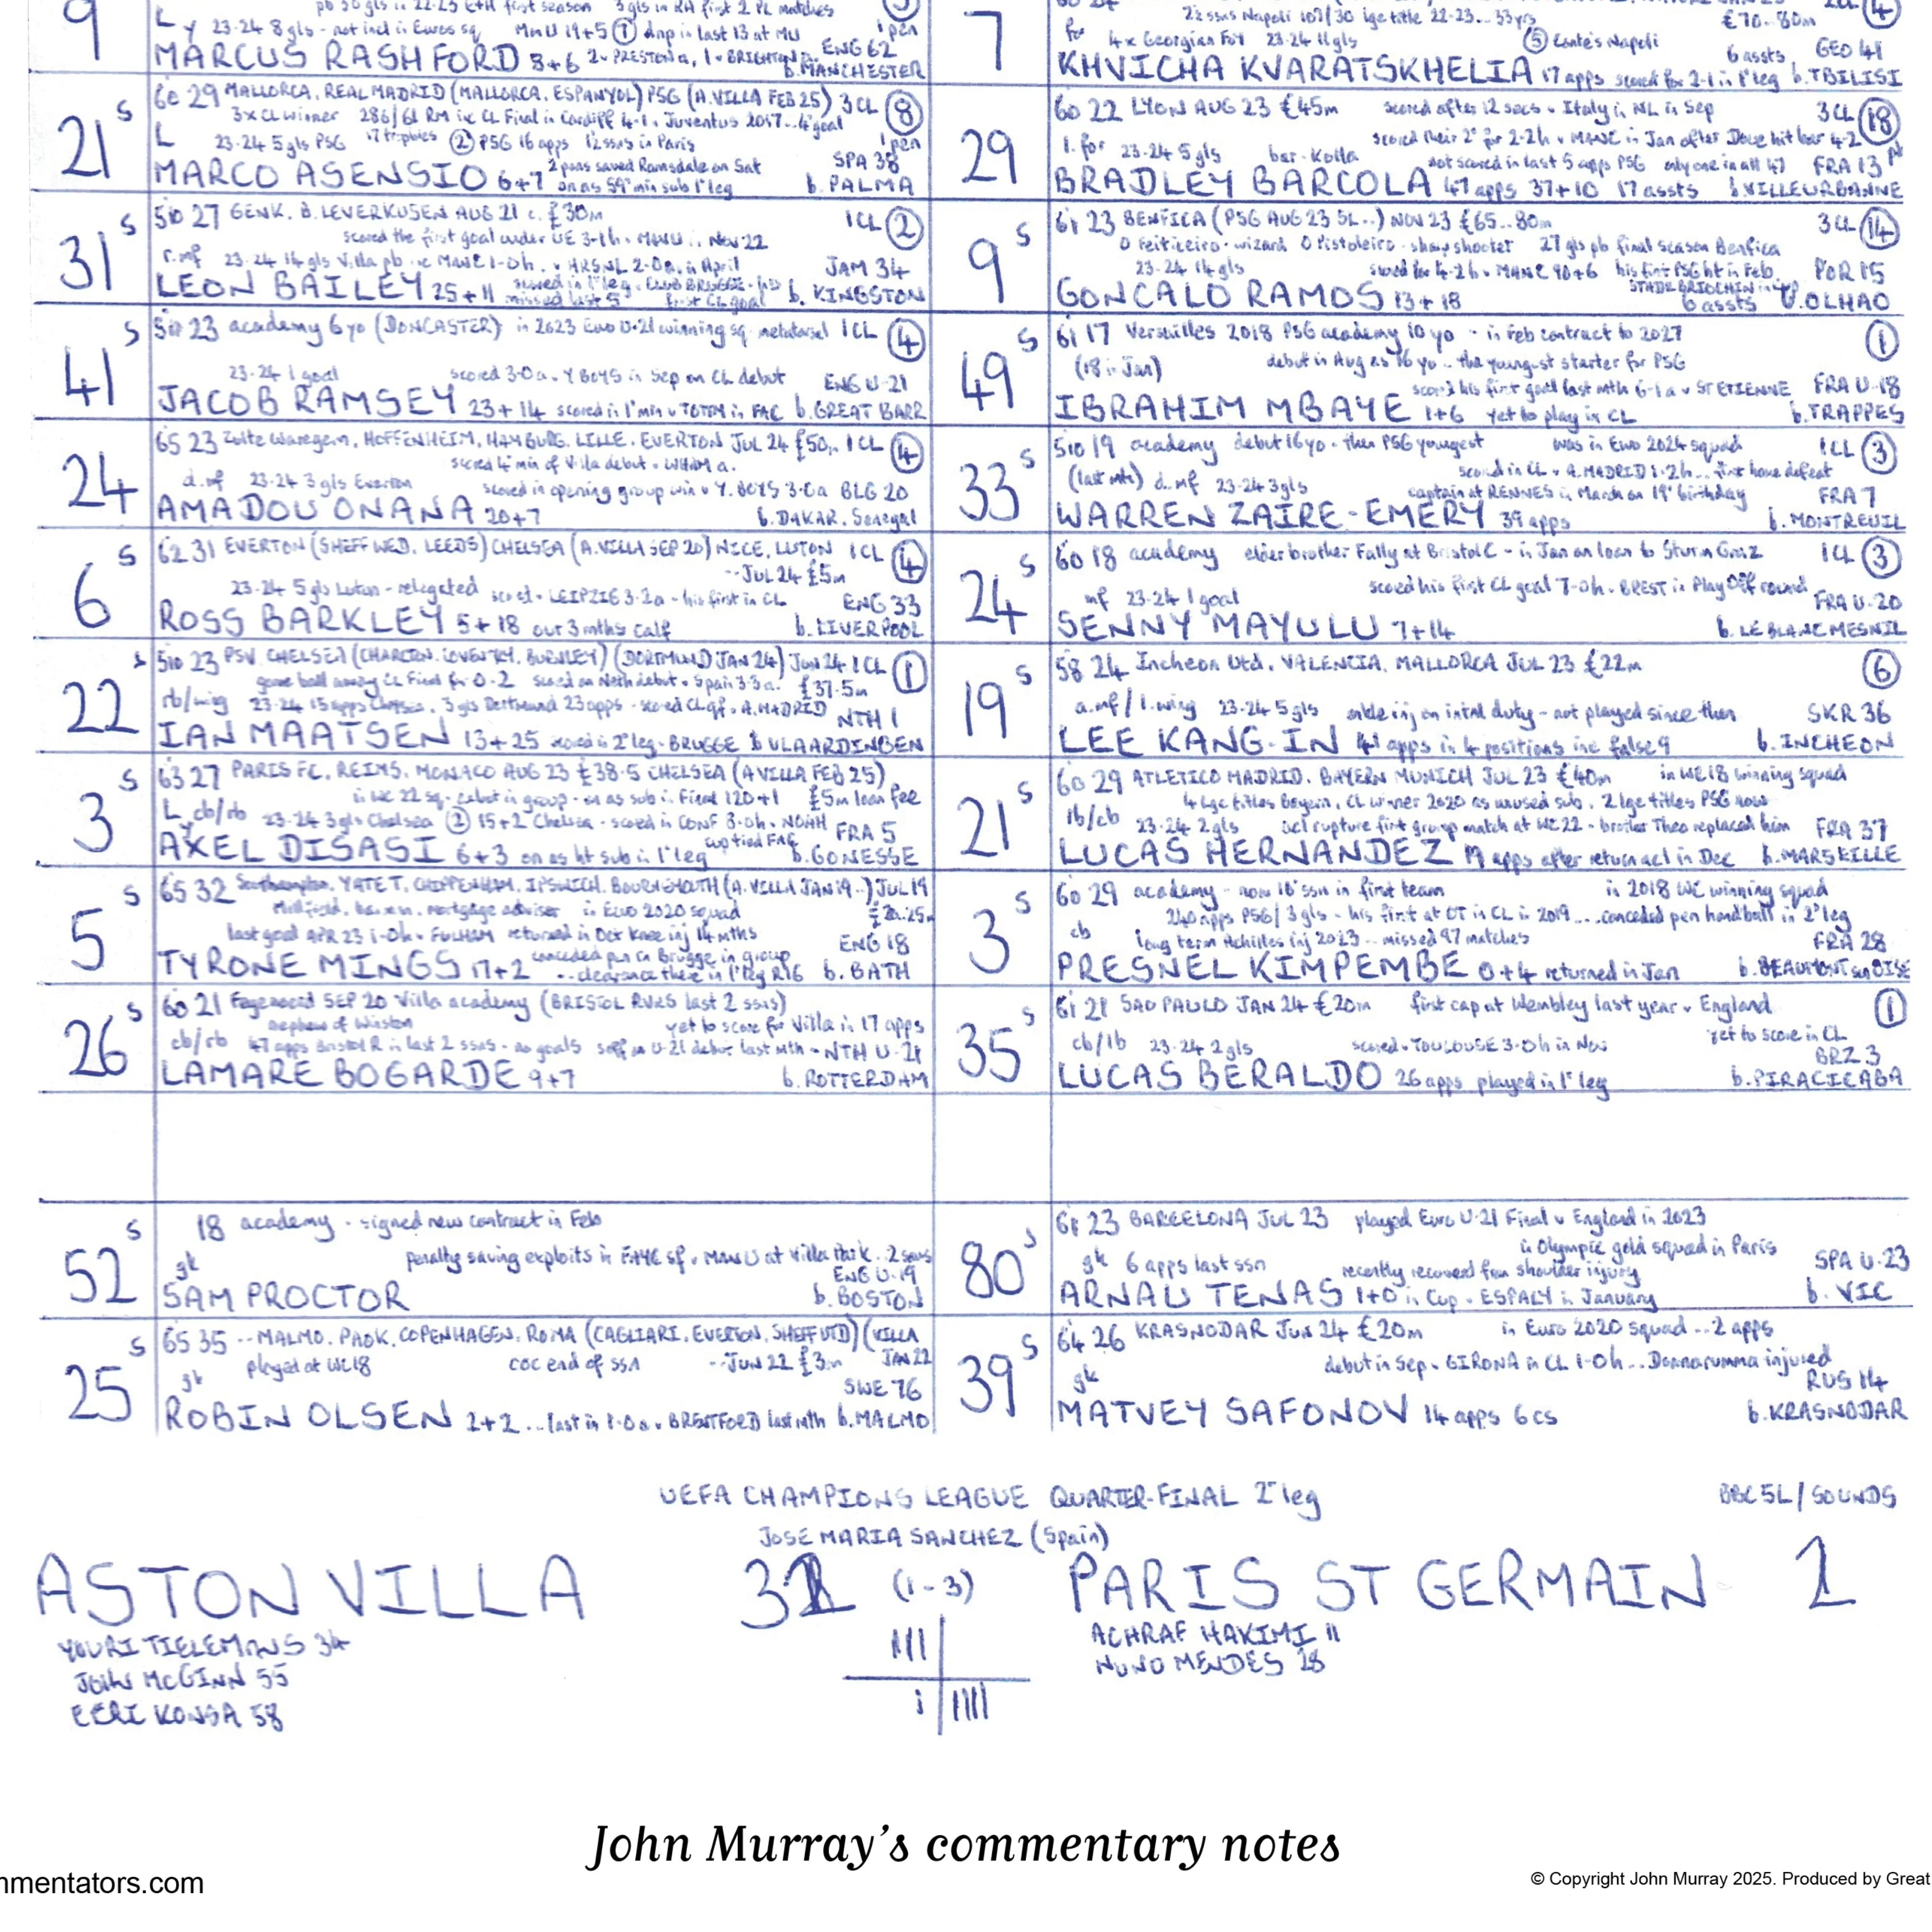 9
pb 30 gls in 22-23 first season 3 gls in first 2 PL matches
L y 23-24 8 gls - not incl in Euros sq Man U 19+5 (1) dnp in last 13 at MU 1 pen
ENG 62
MARCUS RASHFORD 5+6 2 v PRESTON a, 1 v BRIGHTON b. MANCHESTER
21 S
60 29 MALLORCA, REAL MADRID (MALLORCA, ESPANYOL) PSG (A.VILLA FEB 25) 3 CL (8)
3x CL winner 286/61 RM inc CL Final in Cardiff 4-1 v Juventus 2017.. 4th goal
L 23-24 5 gls PSG 17 trophies (2) PSG 16 apps 12 ssns in Paris 1 pen
2 pens saved Ramsdale on Sat SPA 38
MARCO ASENSIO 6+7 on as 59th min sub 1st leg b. PALMA
31 S
510 27 GENK, B. LEVERKUSEN AUG 21 c. £30m 1 CL (2)
scored the first goal under UE 3-1h v MANU in Nov 22
r.mf 23-24 14 gls Villa pb inc MANC 1-0h, v ARSNL 2-0a in April JAM 34
LEON BAILEY 25+11 scored in 1st leg v CLUB BRUGGE - his first CL goal missed last 5 b. KINGSTON
41 S
510 23 academy 6yo (DONCASTER) in 2023 Euro U-21 winning sq metatarsal 1 CL (4)
23-24 1 goal scored 3-0a v Y BOYS in Sep on CL debut ENG U-21
JACOB RAMSEY 23+14 scored in 1st min v TOTTM in FAC b. GREAT BARR
24 S
65 23 Zulte Waregem, HOFFENHEIM, HAMBURG, LILLE, EVERTON JUL 24 £50m 1 CL (4)
scored 4th min of Villa debut v WHAM a.
d.mf 23-24 3 gls Everton scored in opening group win v Y. BOYS 3-0a BLG 20
AMADOU ONANA 20+7 b. DAKAR, Senegal
6 S
62 31 EVERTON (SHEFF WED, LEEDS) CHELSEA (A.VILLA SEP 20) NICE, LUTON 1 CL (4)
-- JUL 24 £5m
23-24 5 gls Luton - relegated scored v LEIPZIG 3-2a - his first in CL ENG 33
ROSS BARKLEY 5+18 out 3 mths calf b. LIVERPOOL
22 S
510 23 PSV, CHELSEA (CHARLTON, COVENTRY, BURNLEY) (DORTMUND JAN 24) Jun 24 1 CL (1)
gave ball away CL Final for 0-2 scored on Neth debut v Spain 3-3 a. £37.5m
rb/wing 23-24 15 apps Chelsea, 3 gls Dortmund 23 apps - scored CL qf v A.MADRID NTH 1
IAN MAATSEN 13+25 scored in 2nd leg v BRUGGE b VLAARDINGEN
3 S
63 27 PARIS FC, REIMS, MONACO AUG 23 £38.5 CHELSEA (A VILLA FEB 25)
in WC 22 sq - debut in group - on as sub in Final 120+1 £5m loan fee
L y cb/rb 23-24 3 gls Chelsea (2) 15+2 Chelsea - scored in CONF 8-0h v NOAH FRA 5
AXEL DISASI 6+3 on as ht sub in 1st leg cup tied FAC b. GONESSE
5 S
65 32 Southampton, YATE T, CHIPPENHAM, IPSWICH, BOURNEMOUTH (A.VILLA JAN 19..) JUL 19
Millfield, barman, mortgage adviser in Euro 2020 squad £20.25m
last goal APR 23 1-0h v FULHAM returned in Oct knee inj 14 mths ENG 18
TYRONE MINGS 17+2 conceded pen in Brugge in group ..clearance there in 1st leg R16 b. BATH
26 S
60 21 Feyenoord SEP 20 Villa academy (BRISTOL RVRS last 2 ssns)
nephew of Winston yet to score for Villa in 17 apps
cb/rb 47 apps Bristol R in last 2 ssns - no goals s/off on U-21 debut last mth - NTH U-21
LAMARE BOGARDE 9+7 b. ROTTERDAM
52 S
18 academy - signed new contract in Feb
gk penalty saving exploits in FAYC sf v MAN U at Villa Park. 2 saves
ENG U-19
SAM PROCTOR b. BOSTON
25 S
65 35 --MALMO, PAOK, COPENHAGEN, ROMA (CAGLIARI, EVERTON, SHEFF UTD) (VILLA JAN 22
gk played at WC18 COC end of ssn --JUN 22 £3m
SWE 76
ROBIN OLSEN 2+2 ...last in 1-0 a v BRENTFORD last mth b. MALMO
7
22 ssns Napoli 107/30 lge title 22-23.. 33 yrs £70-80m (4)
for 4x Georgian FoY 23-24 11 gls (5) Conte's Napoli 6 assts GEO 41
KHVICHA KVARATSKHELIA 17 apps scored for 2-1 in 1st leg b. TBILISI
29
60 22 LYON AUG 23 £45m scored after 12 secs v Italy in NL in Sep 3 CL (18)
scored their 2nd for 2-2h v MANC in Jan after Doue hit bar 4-2
l. for 23-24 5 gls bar-kolla not scored in last 5 apps PSG only one in all 47 FRA 13
BRADLEY BARCOLA 47 apps 37+10 17 assts b. VILLEURBANNE
9 S
61 23 BENFICA (PSG AUG 23 SL..) NOV 23 £65..80m 3 CL (14)
O Feiticeiro - wizard O Pistoleiro - sharpshooter 27 gls pb final season Benfica
23-24 14 gls scored for 4-2h v MANC 90+6 his first PSG ht in Feb. POR 15
STADE BRIOCHIN in Cup
GONCALO RAMOS 13+18 6 assts b. OLHAO
49 S
61 17 Versailles 2018 PSG academy 10 yo - in Feb contract to 2027 (1)
(18 in Jan) debut in Aug as 16 yo - the youngest starter for PSG
scored his first goal last mth 6-1 a v ST ETIENNE FRA U-18
IBRAHIM MBAYE 1+6 yet to play in CL b. TRAPPES
33 S
510 19 academy debut 16yo - then PSG youngest was in Euro 2024 squad 1 CL (3)
(last mth) d. mf 23-24 3 gls scored in CL v A.MADRID 1-2h ... first home defeat
captain at RENNES in March on 19th birthday FRA 7
WARREN ZAIRE-EMERY 39 apps b. MONTREUIL
24 S
60 18 academy elder brother Fally at Bristol C - in Jan on loan to Sturm Graz 1 CL (3)
mf 23-24 1 goal scored his first CL goal 7-0h v BREST in Play Off round FRA U-20
SENNY MAYULU 7+14 b. LE BLANC MESNIL
19 S
58 24 Incheon Utd, VALENCIA, MALLORCA JUL 23 £22m (6)
a.mf/l.wing 23-24 5 gls ankle inj on intnl duty - not played since then SKR 36
LEE KANG-IN 41 apps in 4 positions inc false 9 b. INCHEON
21 S
60 29 ATLETICO MADRID, BAYERN MUNICH JUL 23 £40m in WC18 winning squad
4 lge titles Bayern, CL winner 2020 as unused sub, 2 lge titles PSG now
lb/cb 23-24 2 gls acl rupture first group match at WC22 - brother Theo replaced him FRA 37
LUCAS HERNANDEZ 19 apps after return acl in Dec b. MARSEILLE
3 S
60 29 academy - now 10th ssn in first team in 2018 WC winning squad
240 apps PSG/3 gls - his first at OT in CL in 2019 ....conceded pen handball in 2nd leg
cb long term Achilles inj 2023 -- missed 97 matches FRA 28
PRESNEL KIMPEMBE 0+4 returned in Jan b. BEAUMONT sur OISE
35 S
61 21 SAO PAULO JAN 24 £20m first cap at Wembley last year v England (1)
cb/lb 23-24 2 gls scored v TOULOUSE 3-0h in Nov yet to score in CL
BRZ 3
LUCAS BERALDO 26 apps played in 1st leg b. PIRACICABA
80 S
61 23 BARCELONA JUL 23 played Euro U-21 Final v England in 2023
in Olympic gold squad in Paris
gk 6 apps last ssn recently recovered from shoulder injury SPA U-23
ARNAU TENAS 1+0 in Cup v ESPALY in January b. VIC
39 S
64 26 KRASNODAR Jun 24 £20m in Euro 2020 squad .. 2 apps
gk debut in Sep v GIRONA in CL 1-0h ...Donnarumma injured
RUS 14
MATVEY SAFONOV 14 apps 6 cs b. KRASNODAR
UEFA CHAMPIONS LEAGUE QUARTER-FINAL 2nd leg BBC 5L/SOUNDS
JOSE MARIA SANCHEZ (Spain)
ASTON VILLA 3 (1-3) PARIS ST GERMAIN 2
YOURI TIELEMANS 34
JOHN McGINN 55
EZRI KONSA 58
ACHRAF HAKIMI 11
NUNO MENDES 28
John Murray's commentary notes
mmentators.com
© Copyright John Murray 2025. Produced by Great